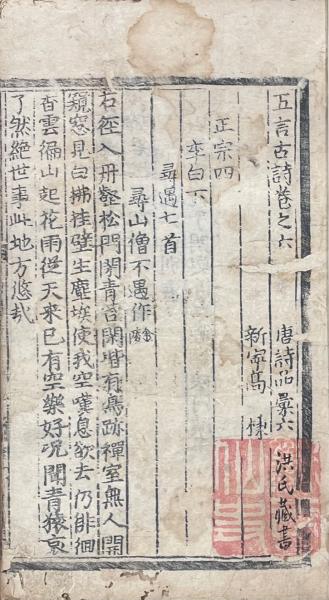 五言古詩卷之六　唐詩品彙六　洪氏藏書
新寧高棅
正宗四
李白下
尋遇七首
尋山僧不遇作
石徑入丹壑松門閉青苔閑堦有鳥跡禪室無人開
窺窓見白拂挂壁生塵埃使我空嘆息欲去仍徘徊
香雲徧山起花雨從天來已有空樂好况聞青猿哀
了然絕世事此地方悠哉